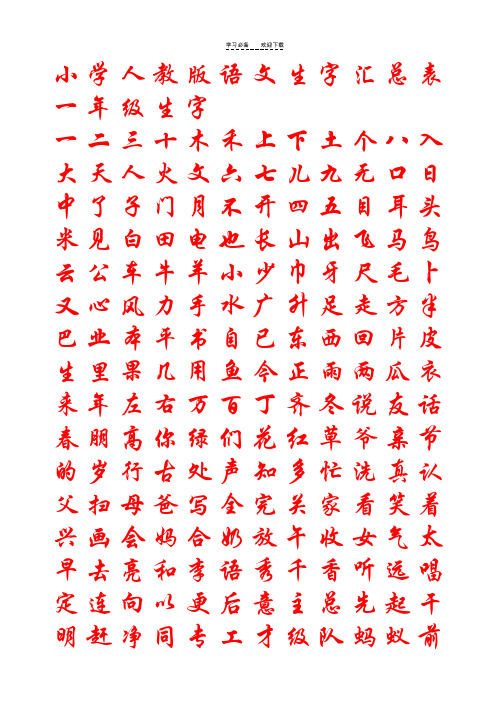 学习必备 欢迎下载
小学人教版语文生字汇总表
一年级生字
一二三十木禾上下土个八入
大天人火文六七儿九无口日
中了子门月不开四五目耳头
米见白田电也长山出飞马鸟
云公车牛羊小少巾牙尺毛卜
又心风力手水广升足走方半
巴业本平书自已东西回片皮
生里果几用鱼今正雨两瓜衣
来年左右万百丁齐冬说友话
春朋高你绿们花红草爷亲节
的岁行古处声知多忙洗真认
父扫母爸写全完关家看笑着
兴画会妈合奶放午收女气太
早去亮和李语秀千香听远唱
定连向以更后意主总先起干
明赶净同专工才级队蚂蚁前